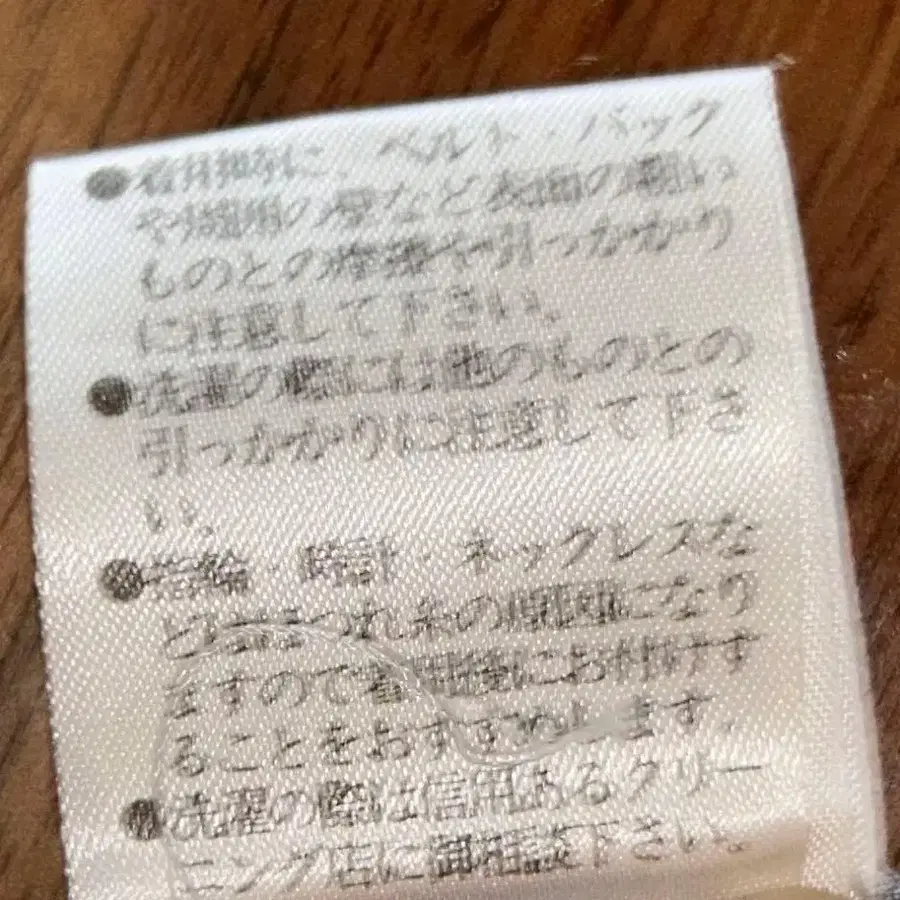 ●着用時に、ベルト・バック
や の壁など表面の粗い
ものとの摩擦や引っかかり
に注意して下さい、
●洗濯の際には他のものとの
引っかかりに注意して下さ
い、
●指輪・時計・ネックレスな
どはほつれ糸の原因になり
ますので着用後にお付けす
ることをおすすめします、
●洗濯の際は信用あるクリー
ニング店に御相談下さい。